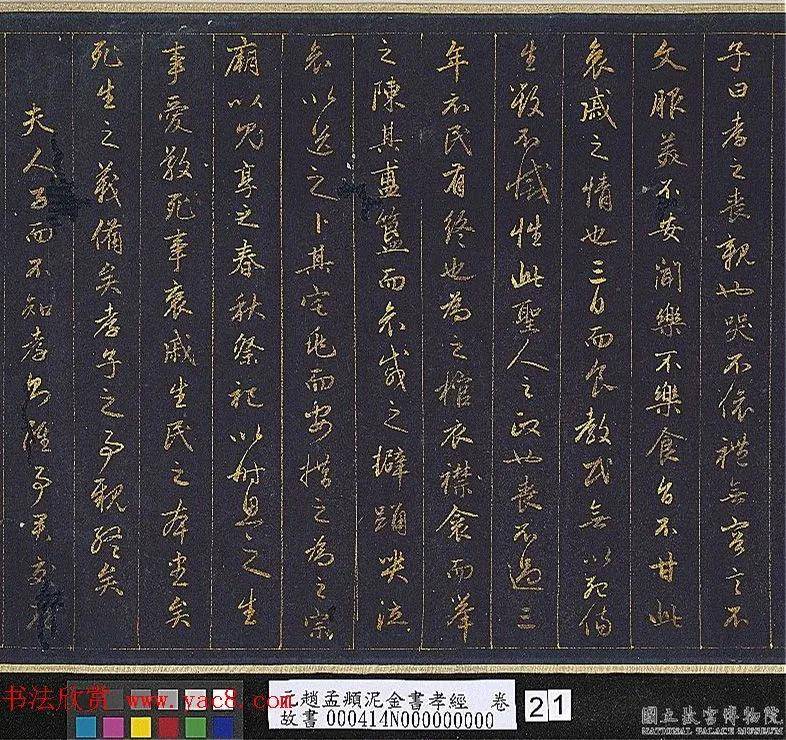 子曰孝之喪親也哭不偯禮無容言不
文服美不安聞樂不樂食旨不甘此
哀戚之情也三日而食教民無以死傷
生毀不滅性此聖人之政也喪不過三
年示民有終也為之棺衣襟衾而舉
之陳其簠簋而哀慼之擗踊哭泣
哀以送之卜其宅兆而安措之為之宗
廟以鬼享之春秋祭祀以時思之生
事愛敬死事哀戚生民之本盡矣
死生之義備矣孝子之事親終矣
夫人子而不知孝事君交
书法欣赏 www.yac8.com
元趙孟頫泥金書孝經 卷
故書000414N000000000
21
國立故宮博物院
NATIONAL PALACE MUSEUM